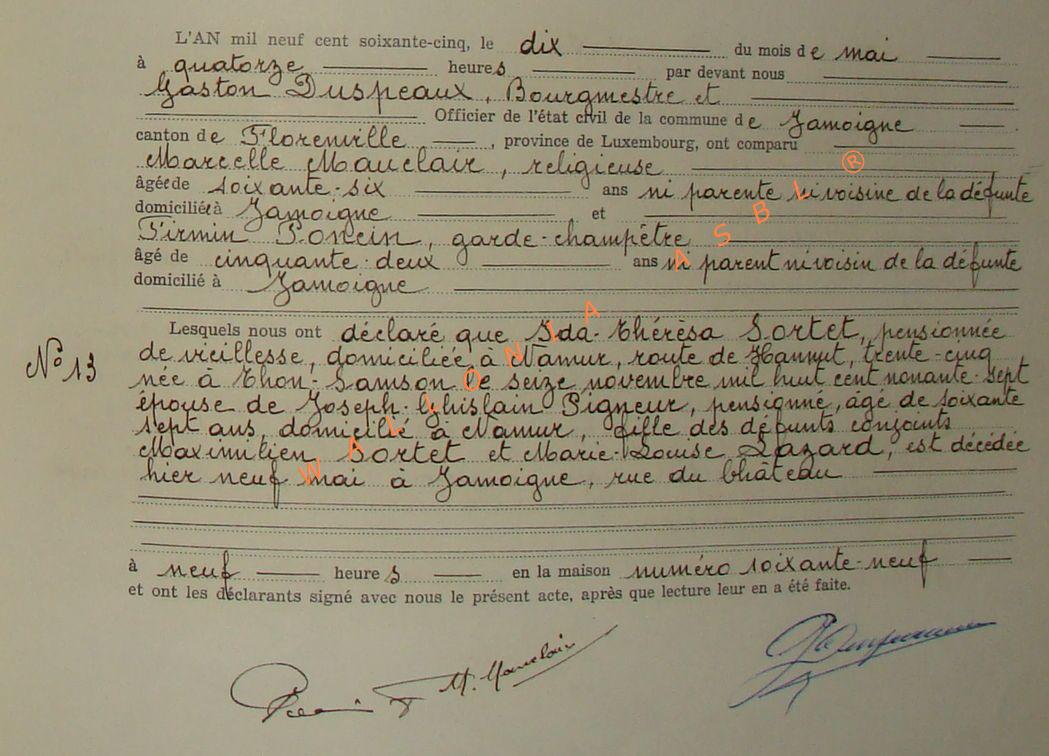 L'AN mil neuf cent soixante-cinq, le dix du mois de mai
à quatorze heures par devant nous
Gaston Duspeaux, Bourgmestre et
Officier de l'état civil de la commune de Jamoigne
canton de Florenville, province de Luxembourg, ont comparu
Marcelle Mauclair, religieuse
âgée de soixante-six ans ni parente ni voisine de la défunte
domiciliée à Jamoigne et
Firmin Poncin, garde-champêtre
âgé de cinquante-deux ans ni parent ni voisin de la défunte
domicilié à Jamoigne
Lesquels nous ont déclaré que Ida-Thérèsa Sortet, pensionnée
de vieillesse, domiciliée à Namur, route de Hannut, trente-cinq
N° 13
née à Thon-Samson le seize novembre mil huit cent nonante-sept
épouse de Joseph-Ghislain Pigneur, pensionné, âgé de soixante
sept ans, domicilié à Namur, fille des défunts conjoints
Maximilien Sortet et Marie-Louise Lazard, est décédée
hier neuf mai à Jamoigne, rue du Château
à neuf heures en la maison numéro soixante-neuf
et ont les déclarants signé avec nous le présent acte, après que lecture leur en a été faite.
M. Mauclair
WALLONIA ASBL ®